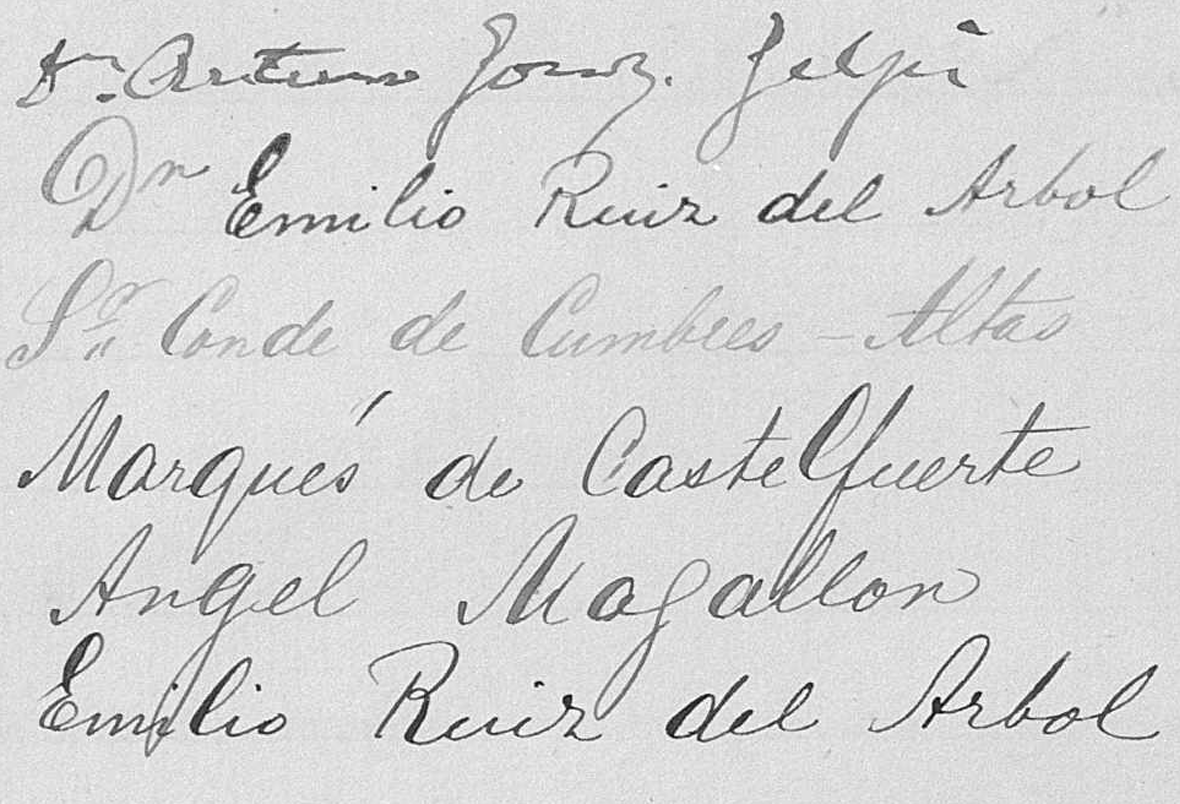 Dn. Arturo Gonz. Gelpi
Dn Emilio Ruiz del Arbol
Sr. Conde de Cumbres - Altas
Marqués de Castelfuerte
Angel Magallon
Emilio Ruiz del Arbol